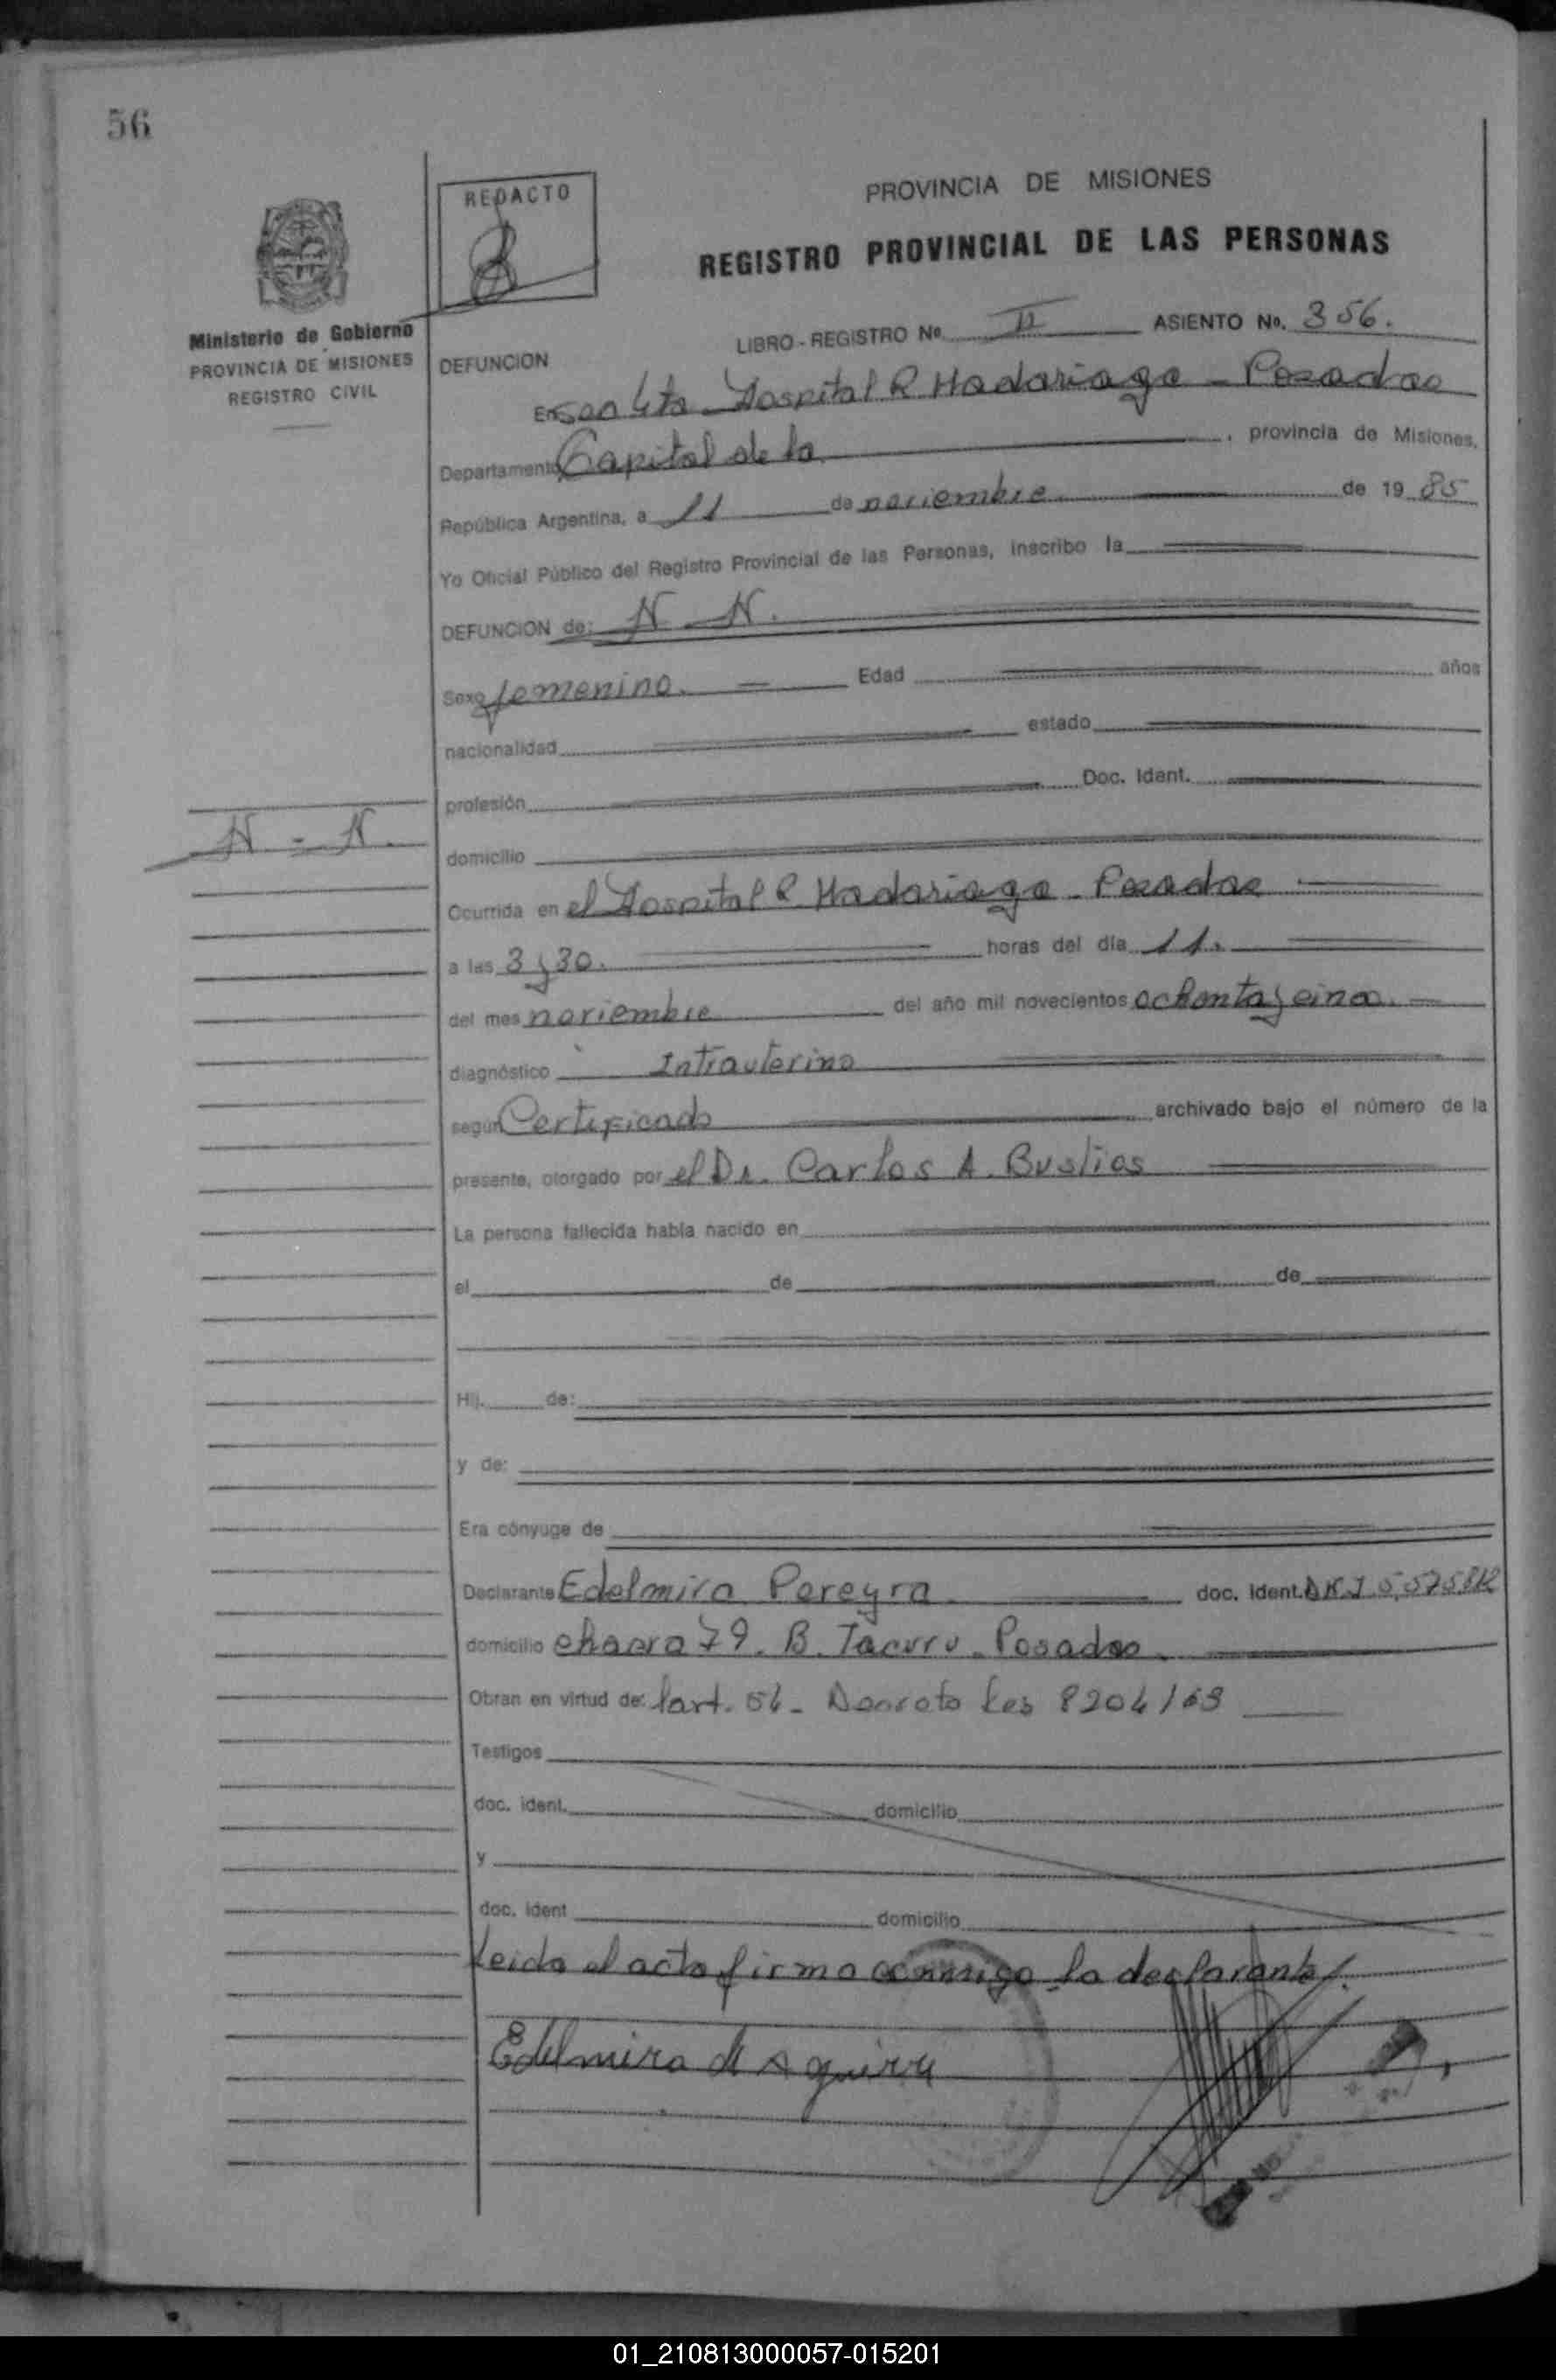 56
REDACTO
PROVINCIA DE MISIONES
REGISTRO PROVINCIAL DE LAS PERSONAS
Ministerio de Gobierno
PROVINCIA DE MISIONES
REGISTRO CIVIL
LIBRO - REGISTRO No. II ASIENTO No. 356.
DEFUNCION
En 4ta Hospital R Madariaga - Posadas
Departamento Capital de la , provincia de Misiones,
República Argentina, a 11 de noviembre de 19 85
Yo Oficial Público del Registro Provincial de las Personas, inscribo la
DEFUNCION de: N - N.
Sexo femenino. Edad años
nacionalidad estado
profesión Doc. Ident.
N - N.
domicilio
Ocurrida en el Hospital R Madariaga - Posadas
a las 3 y 30. horas del día 11.
del mes noviembre del año mil novecientos ochenta y cinco.
diagnóstico Intrauterino
según Certificado archivado bajo el número de la
presente, otorgado por el Dr. Carlos A. Bustios
La persona fallecida había nacido en
el de de
Hij. de:
y de:
Era cónyuge de
Declarante Edelmira Pereyra doc. Ident.
domicilio chacra 79. B. Tacuru - Posadas.
Obran en virtud de: l'art. 54 - Decreto Ley 8204/63
Testigos
doc. ident. domicilio
y
doc. ident domicilio
Leida el acta firma conmigo la declarante.
Edelmira de Aguirre
01_210813000057-015201